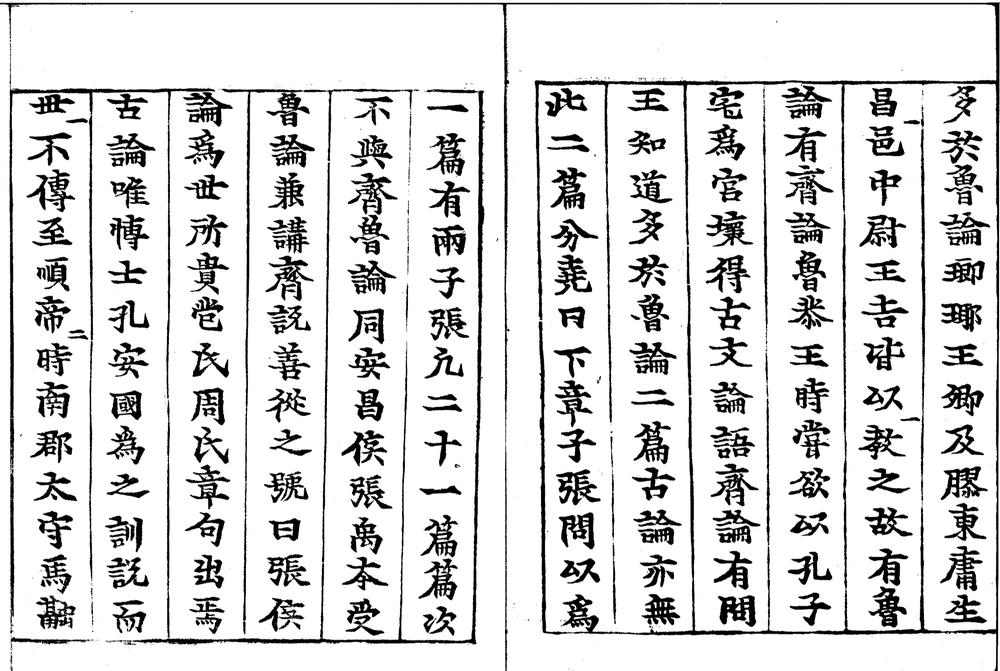 多於魯論瑯琊王卿及膠東庸生
昌邑中尉王吉皆以教之故有魯
論有齊論魯恭王時嘗欲以孔子
宅為宮壞得古文論語齊論有問
王知道多於魯論二篇古論亦無
此二篇分堯曰下章子張問以為
一篇有兩子張凢二十一篇篇次
不與齊魯論同安昌侯張禹夲受
魯論兼講齊說善從之號曰張侯
論為世所貴苞氏周氏章句出焉
古論唯博士孔安國為之訓說而
世不傳至順帝時南郡太守馬融